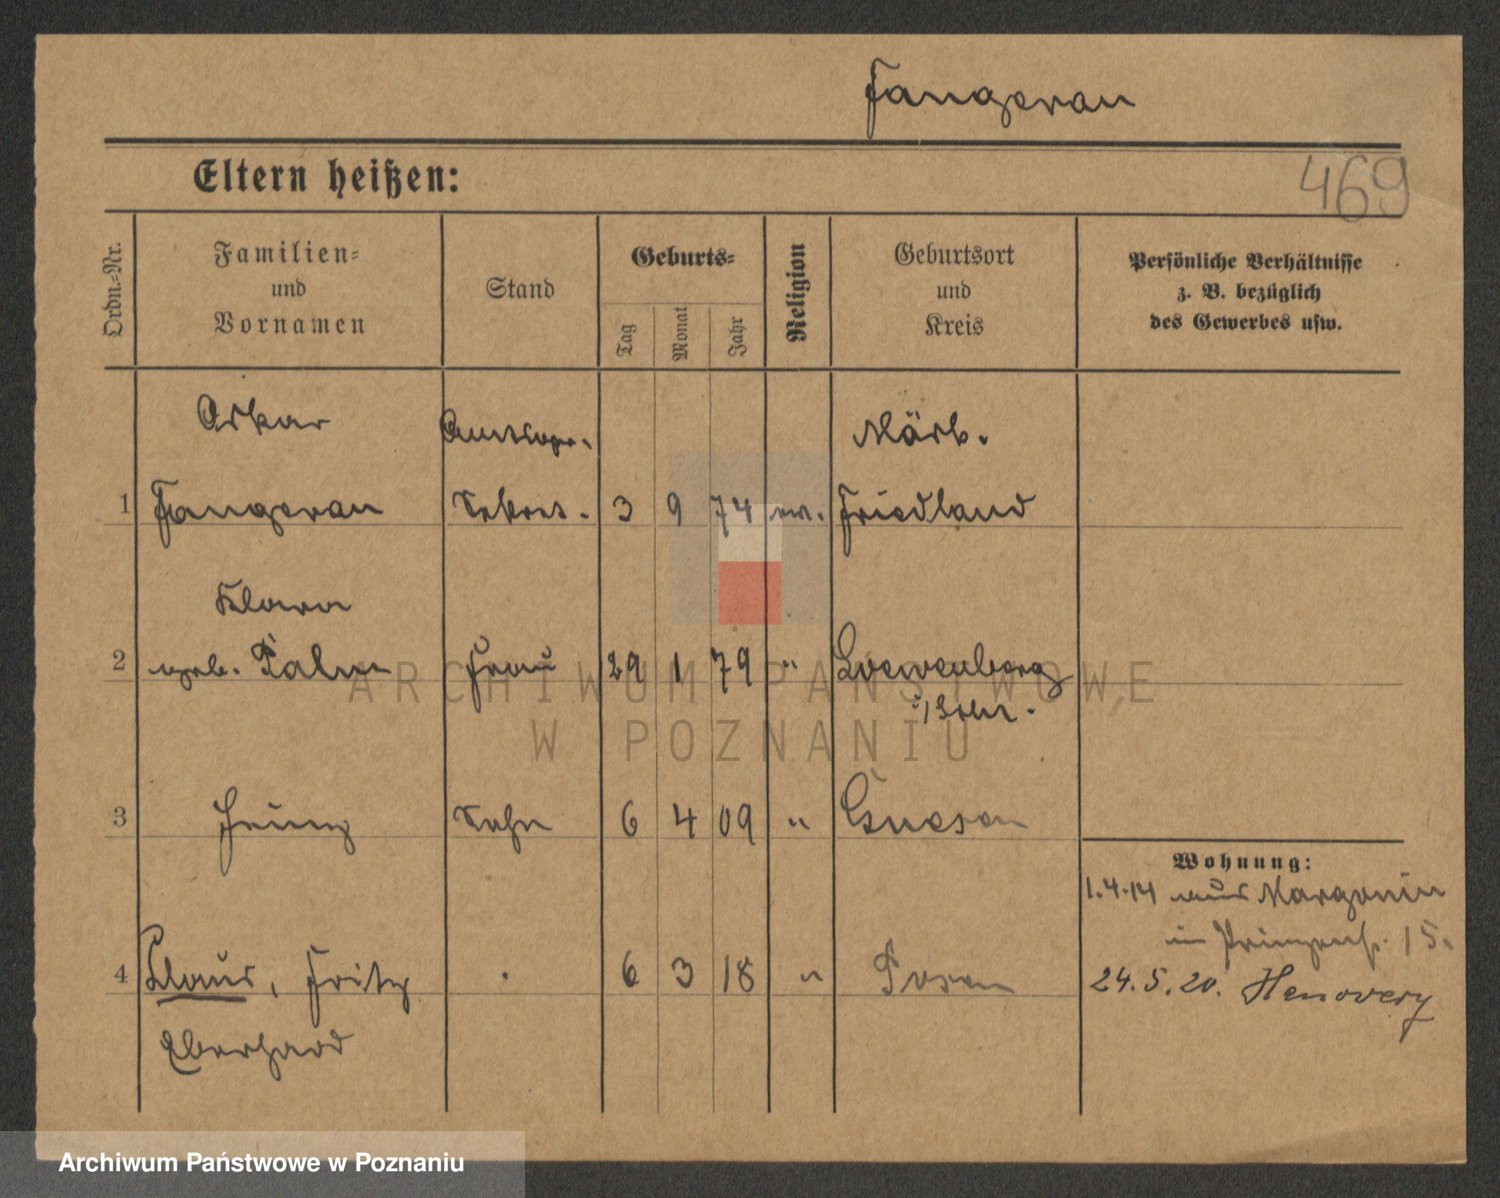 Fangerau
Eltern heißen:
469
Ordn.-Nr.
Familien-
und
Vornamen
Stand
Geburts-
Tag
Monat
Jahr
Religion
Geburtsort
und
Kreis
Persönliche Verhältnisse
z. B. bezüglich
des Gewerbes usw.
Oskar
Märk.
1 Fangerau Sekret. 3 9 74 ev. Friedland
Klara
2 geb. Palm Frau 29 1 79 " Loewenberg
3 Heinz Sohn 6 4 09 " Gnesen
Wohnung:
1.4.14 aus Margonin
in Prinzenstr. 15.
4 Klaus, Fritz 6 3 18 " Posen
24.5.20.
Eberhard
ARCHIWUM PAŃSTWOWE
W POZNANIU
Archiwum Państwowe w Poznaniu